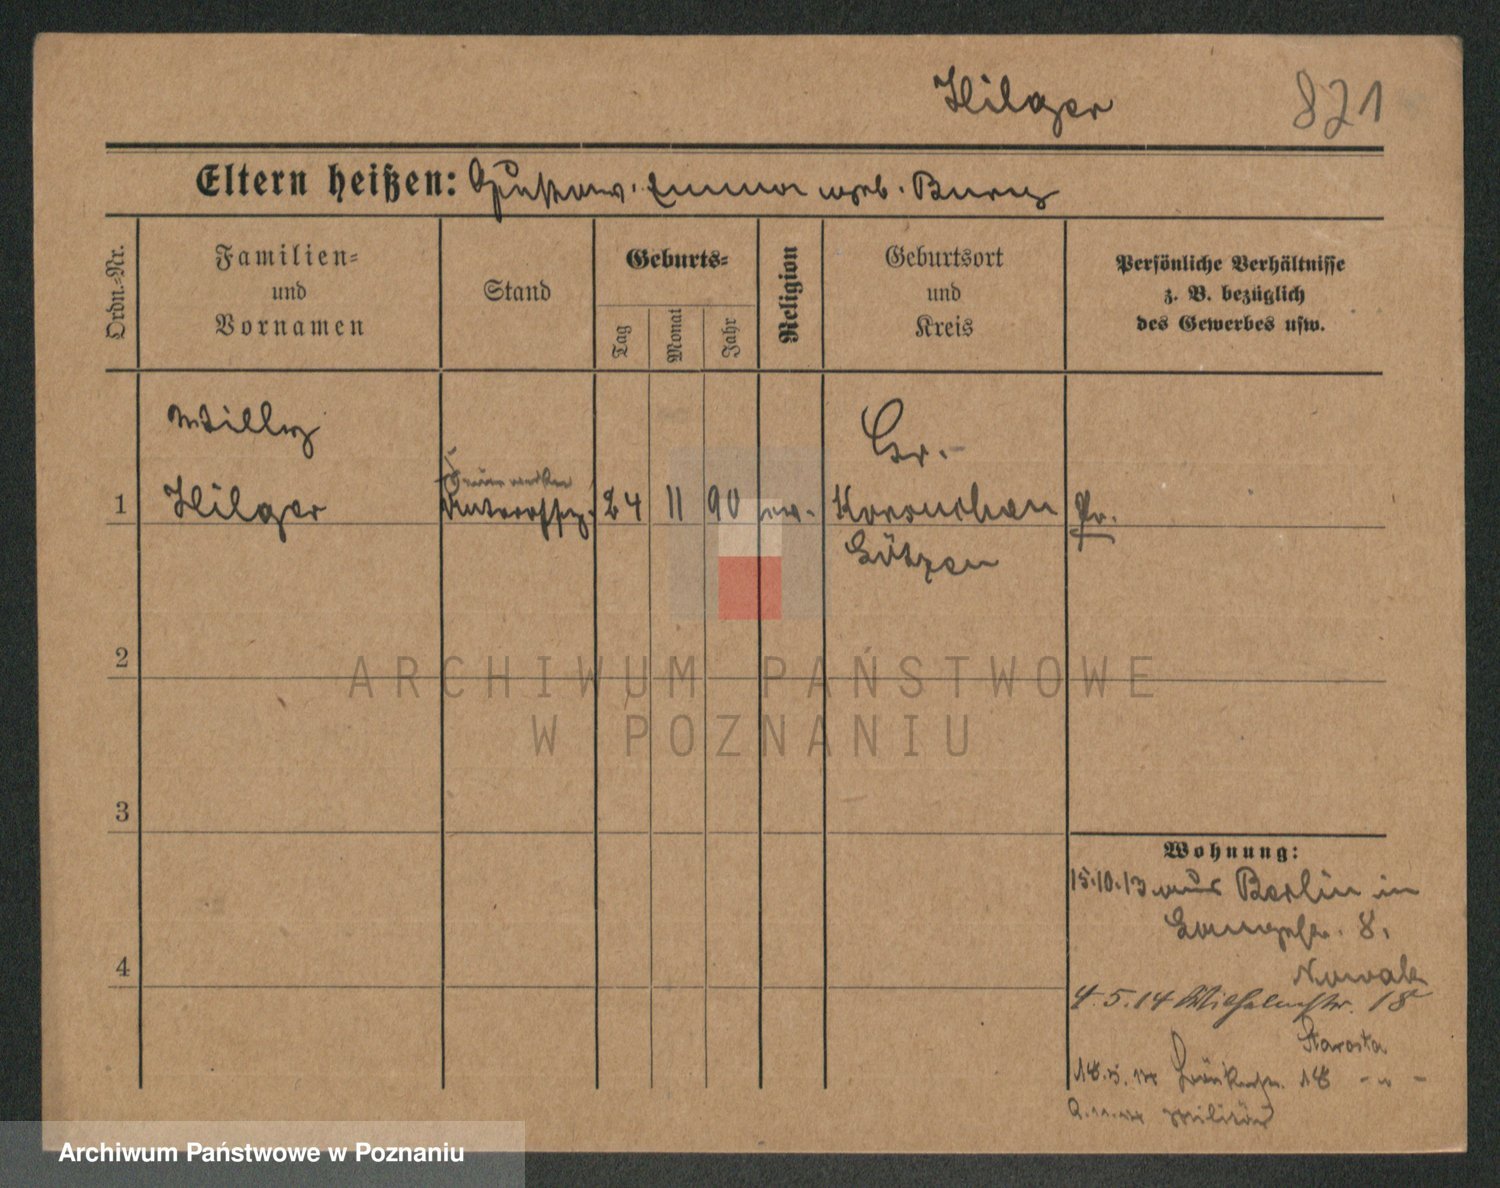 Hilger 821
Eltern heißen: Gustav. Emma geb. Bury
Ordn.=Nr.
Familien=
und
Vornamen
Stand
Geburts=
Tag
Monat
Jahr
Religion
Geburtsort
und
Kreis
Persönliche Verhältnisse
z. B. bezüglich
des Gewerbes usw.
Willy
Gr.-
1 Hilger Unteroffz. 24 11 90 ev. Pr.
Lötzen
2
3
4
Wohnung:
15.10.13 aus Berlin in
8.
Nowak
4.5.14 Wilhelmstr. 18
Starosta
18 - " -
Militär
ARCHIWUM PAŃSTWOWE
W POZNANIU
Archiwum Państwowe w Poznaniu